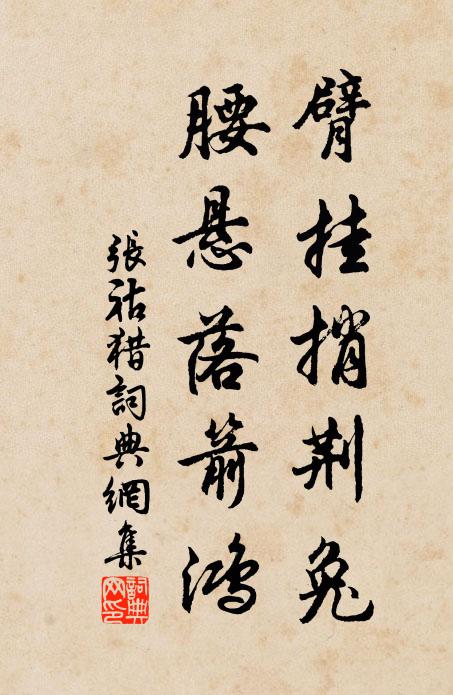 臂挂捎荆兔
腰悬落箭鸿
張祜猎詞典網集
詞典網印